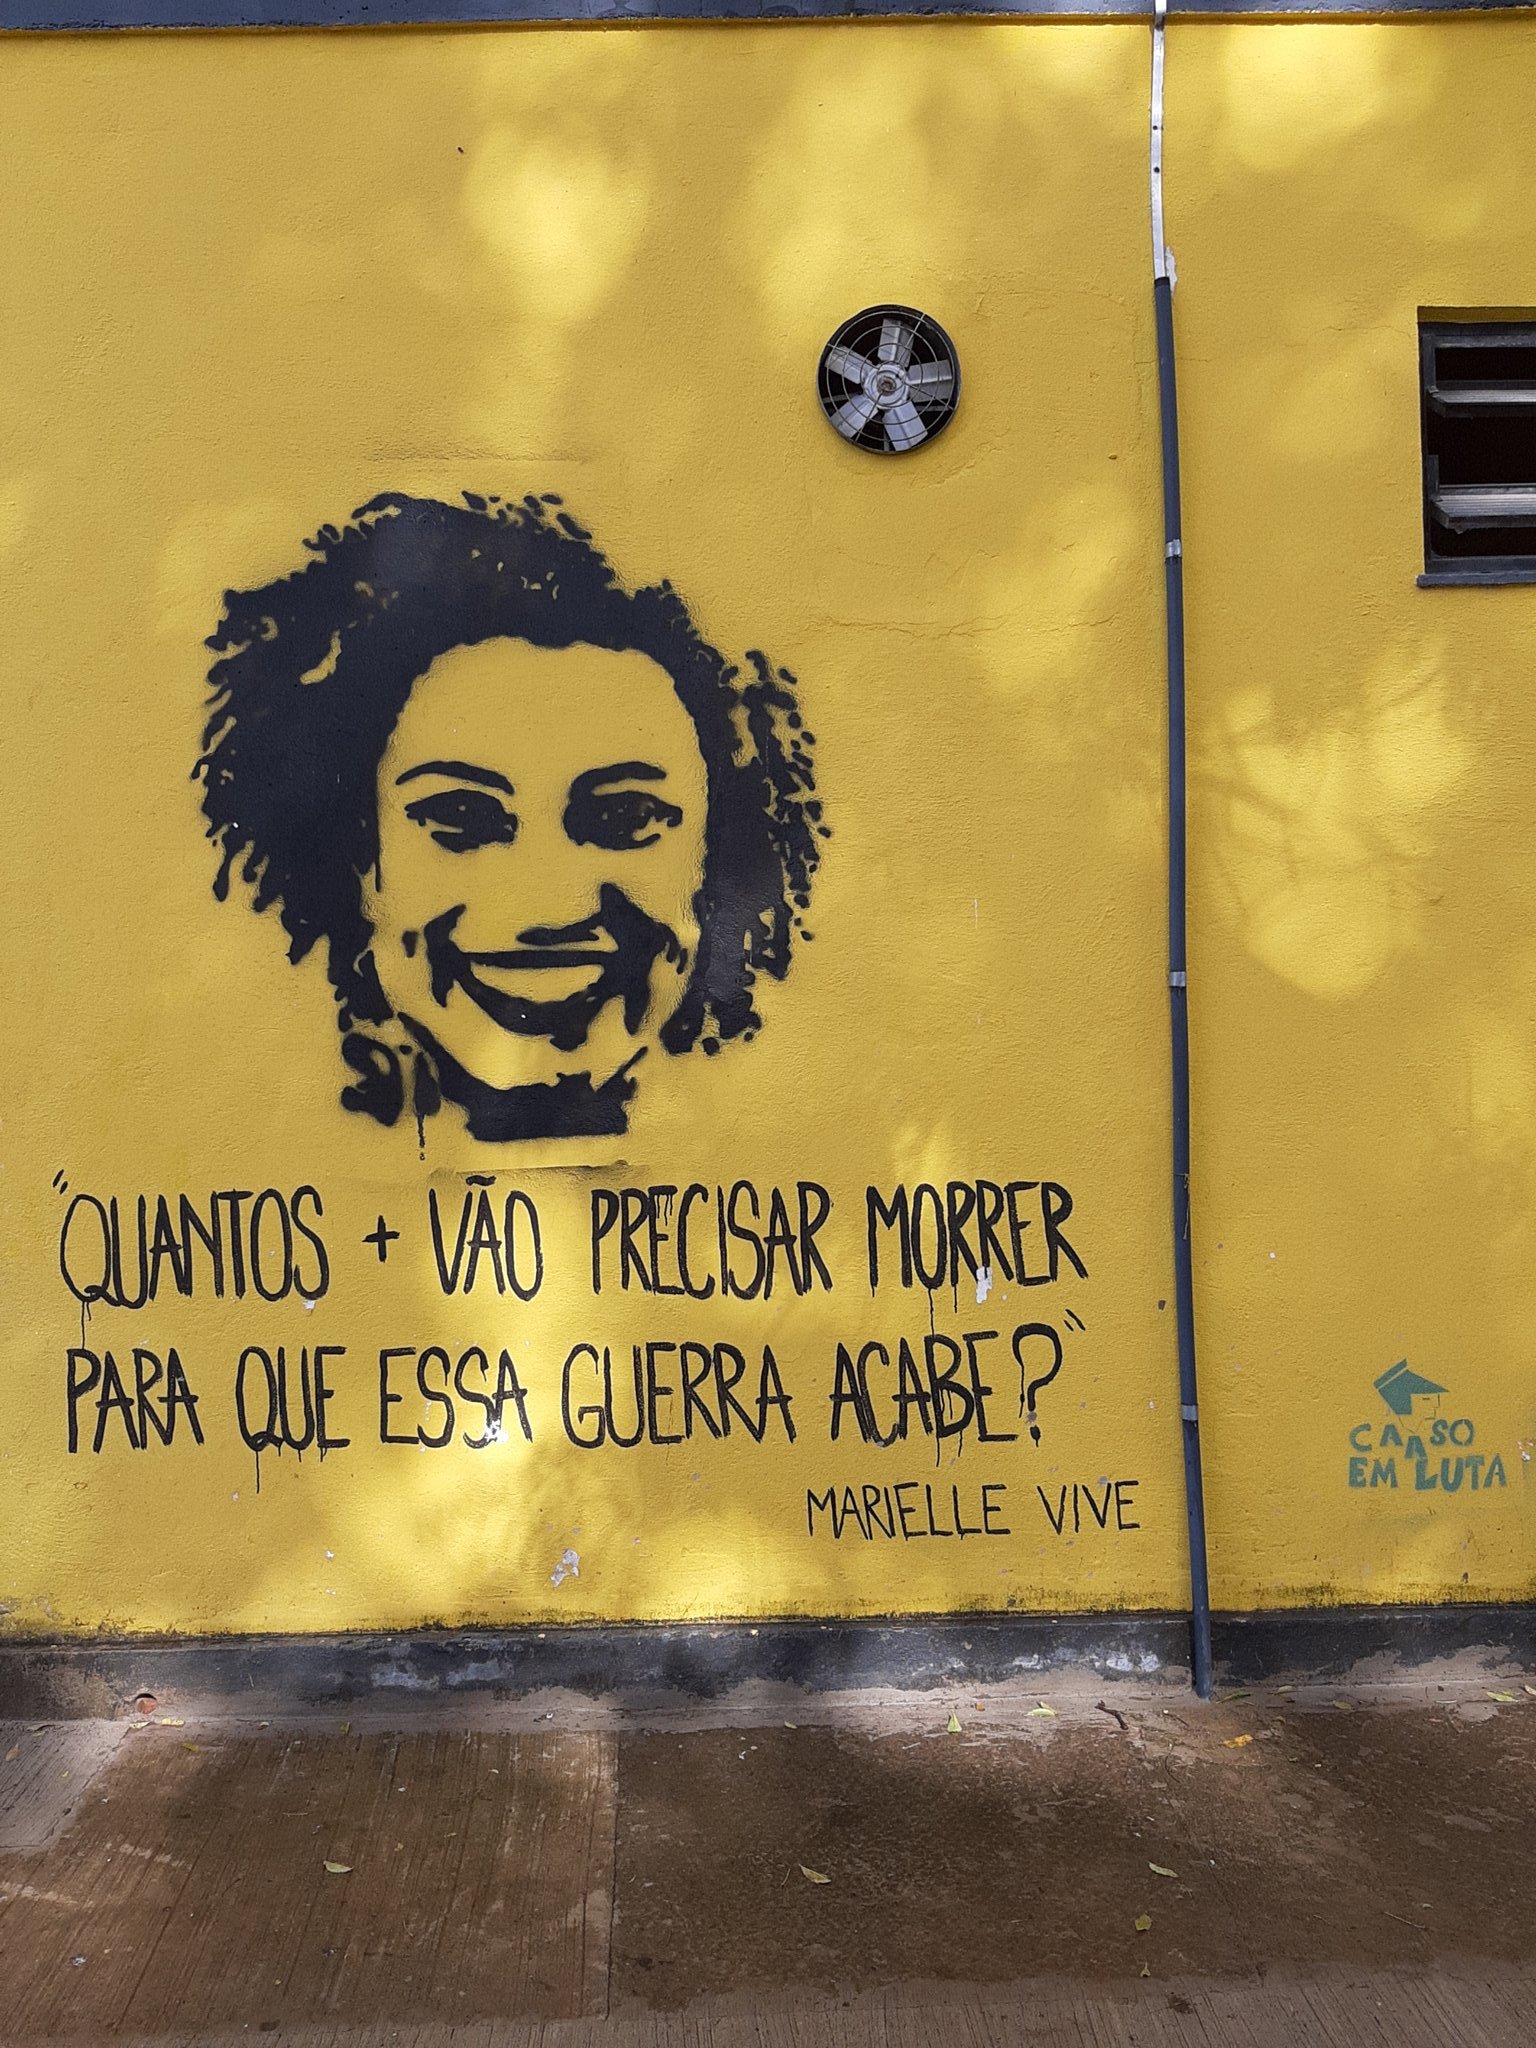 "QUANTOS + VÃO PRECISAR MORRER
PARA QUE ESSA GUERRA ACABE?"
MARIELLE VIVE
CAASO
EM LUTA